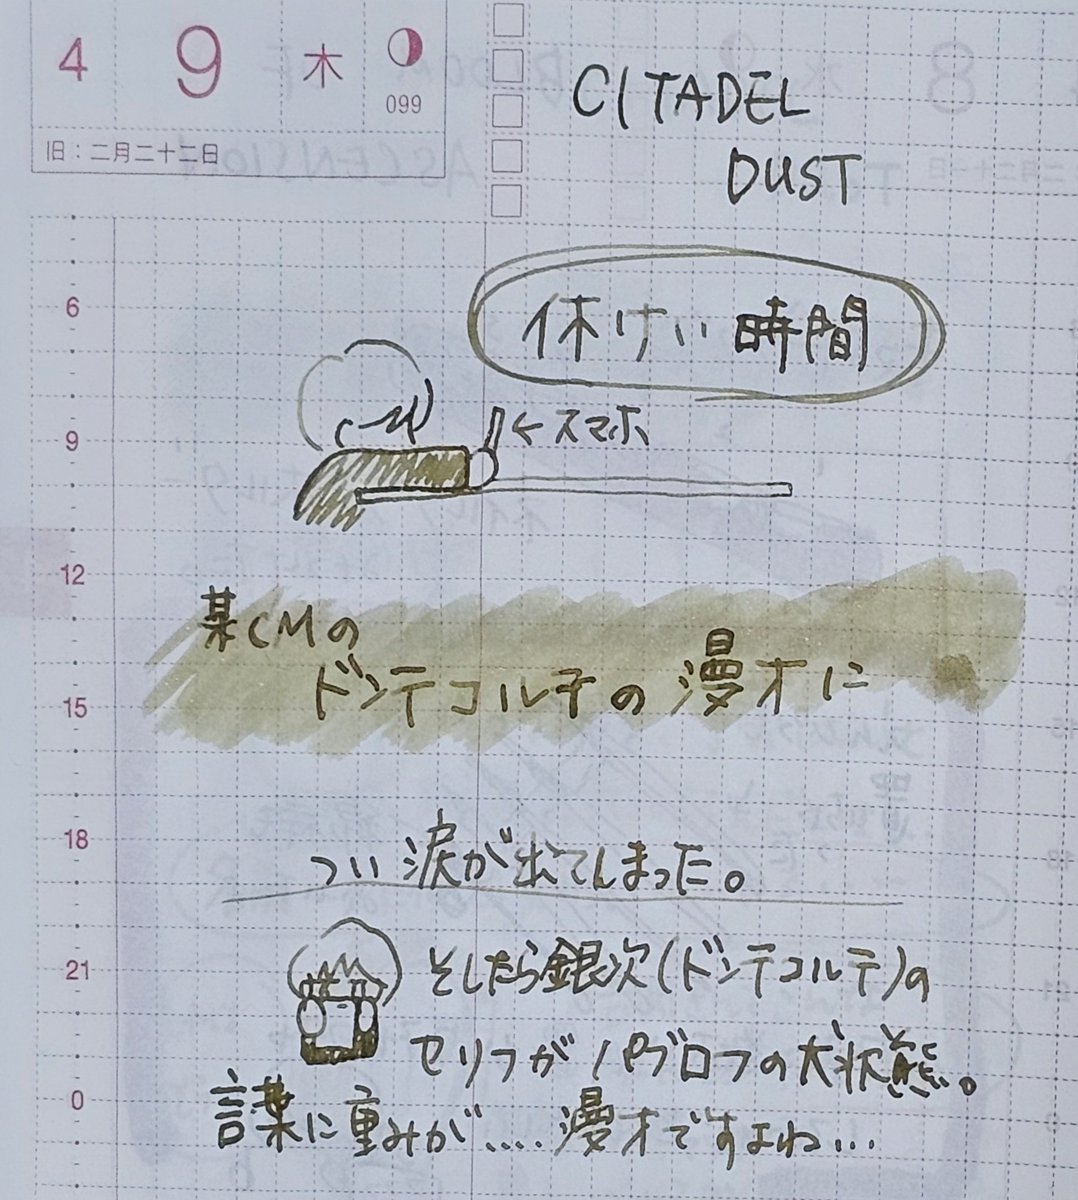 4 9 木
099
旧：二月二十二日
CITADEL
DUST
休けい時間
←スマホ
某CMの
ドンデコルテの漫才に
つい涙が出てしまった。
そしたら銀次(ドンデコルテ)の
セリフがパブロフの犬状態。
言葉に重みが....漫才ですよね...
6
9
12
15
18
21
0